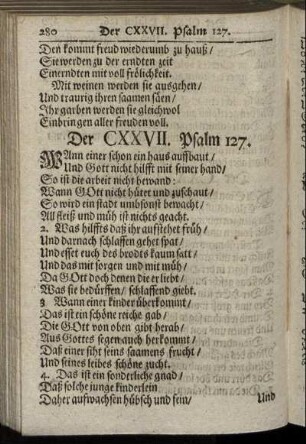 280 Der CXXVII. Psalm 127.
Den kommt freud wiederumb zu hauß/
Sie werden zu der erndten zeit
Einerndten mit voll frölichkeit.
Mit weinen werden sie ausgehen/
Und traurig ihren saamen säen/
Ihr garben werden sie gleichwol
Einbringen aller freuden voll.
Der CXXVII. Psalm 127.
WAnn einer schon ein haus auffbaut/
Und Gott nicht hilfft mit seiner hand/
So ist die arbeit nicht bewand:
Wann GOtt nicht hütet und zuschaut/
So wird ein stadt umbsonst bewacht/
All fleiß und müh ist nichts geacht.
2. Was hilffts daß ihr auffstehet früh/
Und darnach schlaffen gehet spat/
Und esset euch des brodts kaum satt/
Und das mit sorgen und mit müh/
Da GOtt doch denen die er liebt/
Was sie bedürffen/ schlaffend giebt.
3 Wann einer kinder überkommt/
Das ist ein schöne reiche gab/
Die GOtt von oben gibt herab/
Aus Gottes segen auch herkommt/
Daß einer siht seins saamens frucht/
Und seines leibes schöne zucht.
4. Das ist ein sonderliche gnad/
Daß solche junge kinderlein
Daher auffwachsen hübsch und fein/
Und